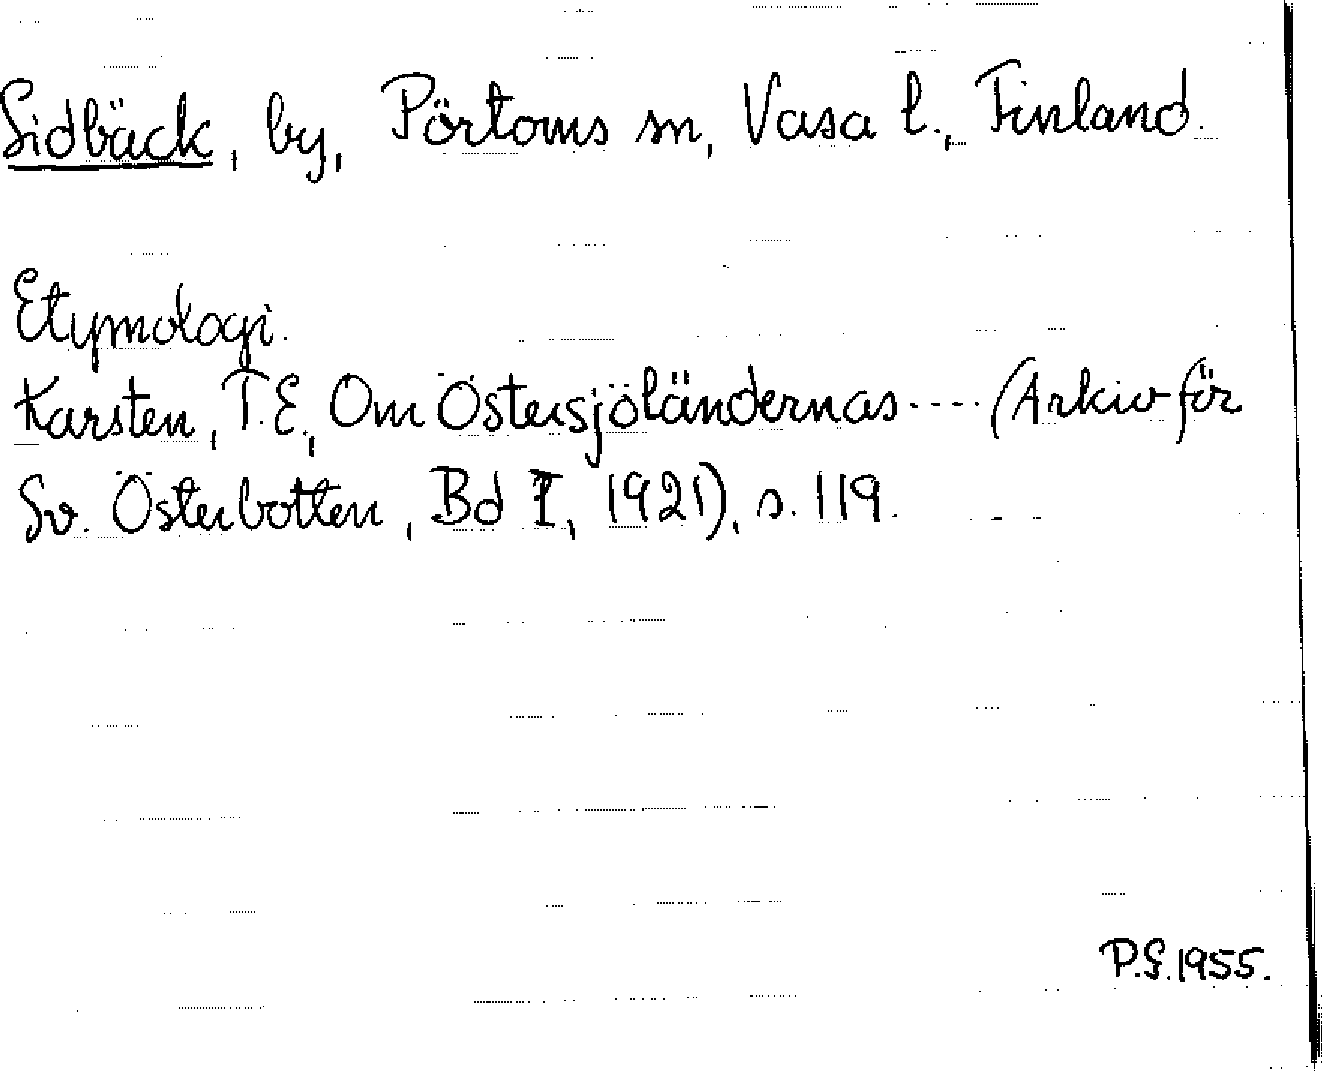 Sidbäck, by, Pörtoms sn, Vasa l., Finland.
Etymologi.
Karsten, T.E., Om Östersjöländernas ---- (Arkiv för
Sv. Österbotten, Bd I, 1921), s. 119.
P.S. 1955.